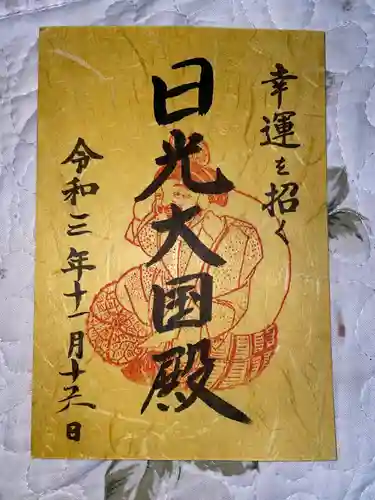 幸運を招く
日光大国殿
令和三年十一月十五日